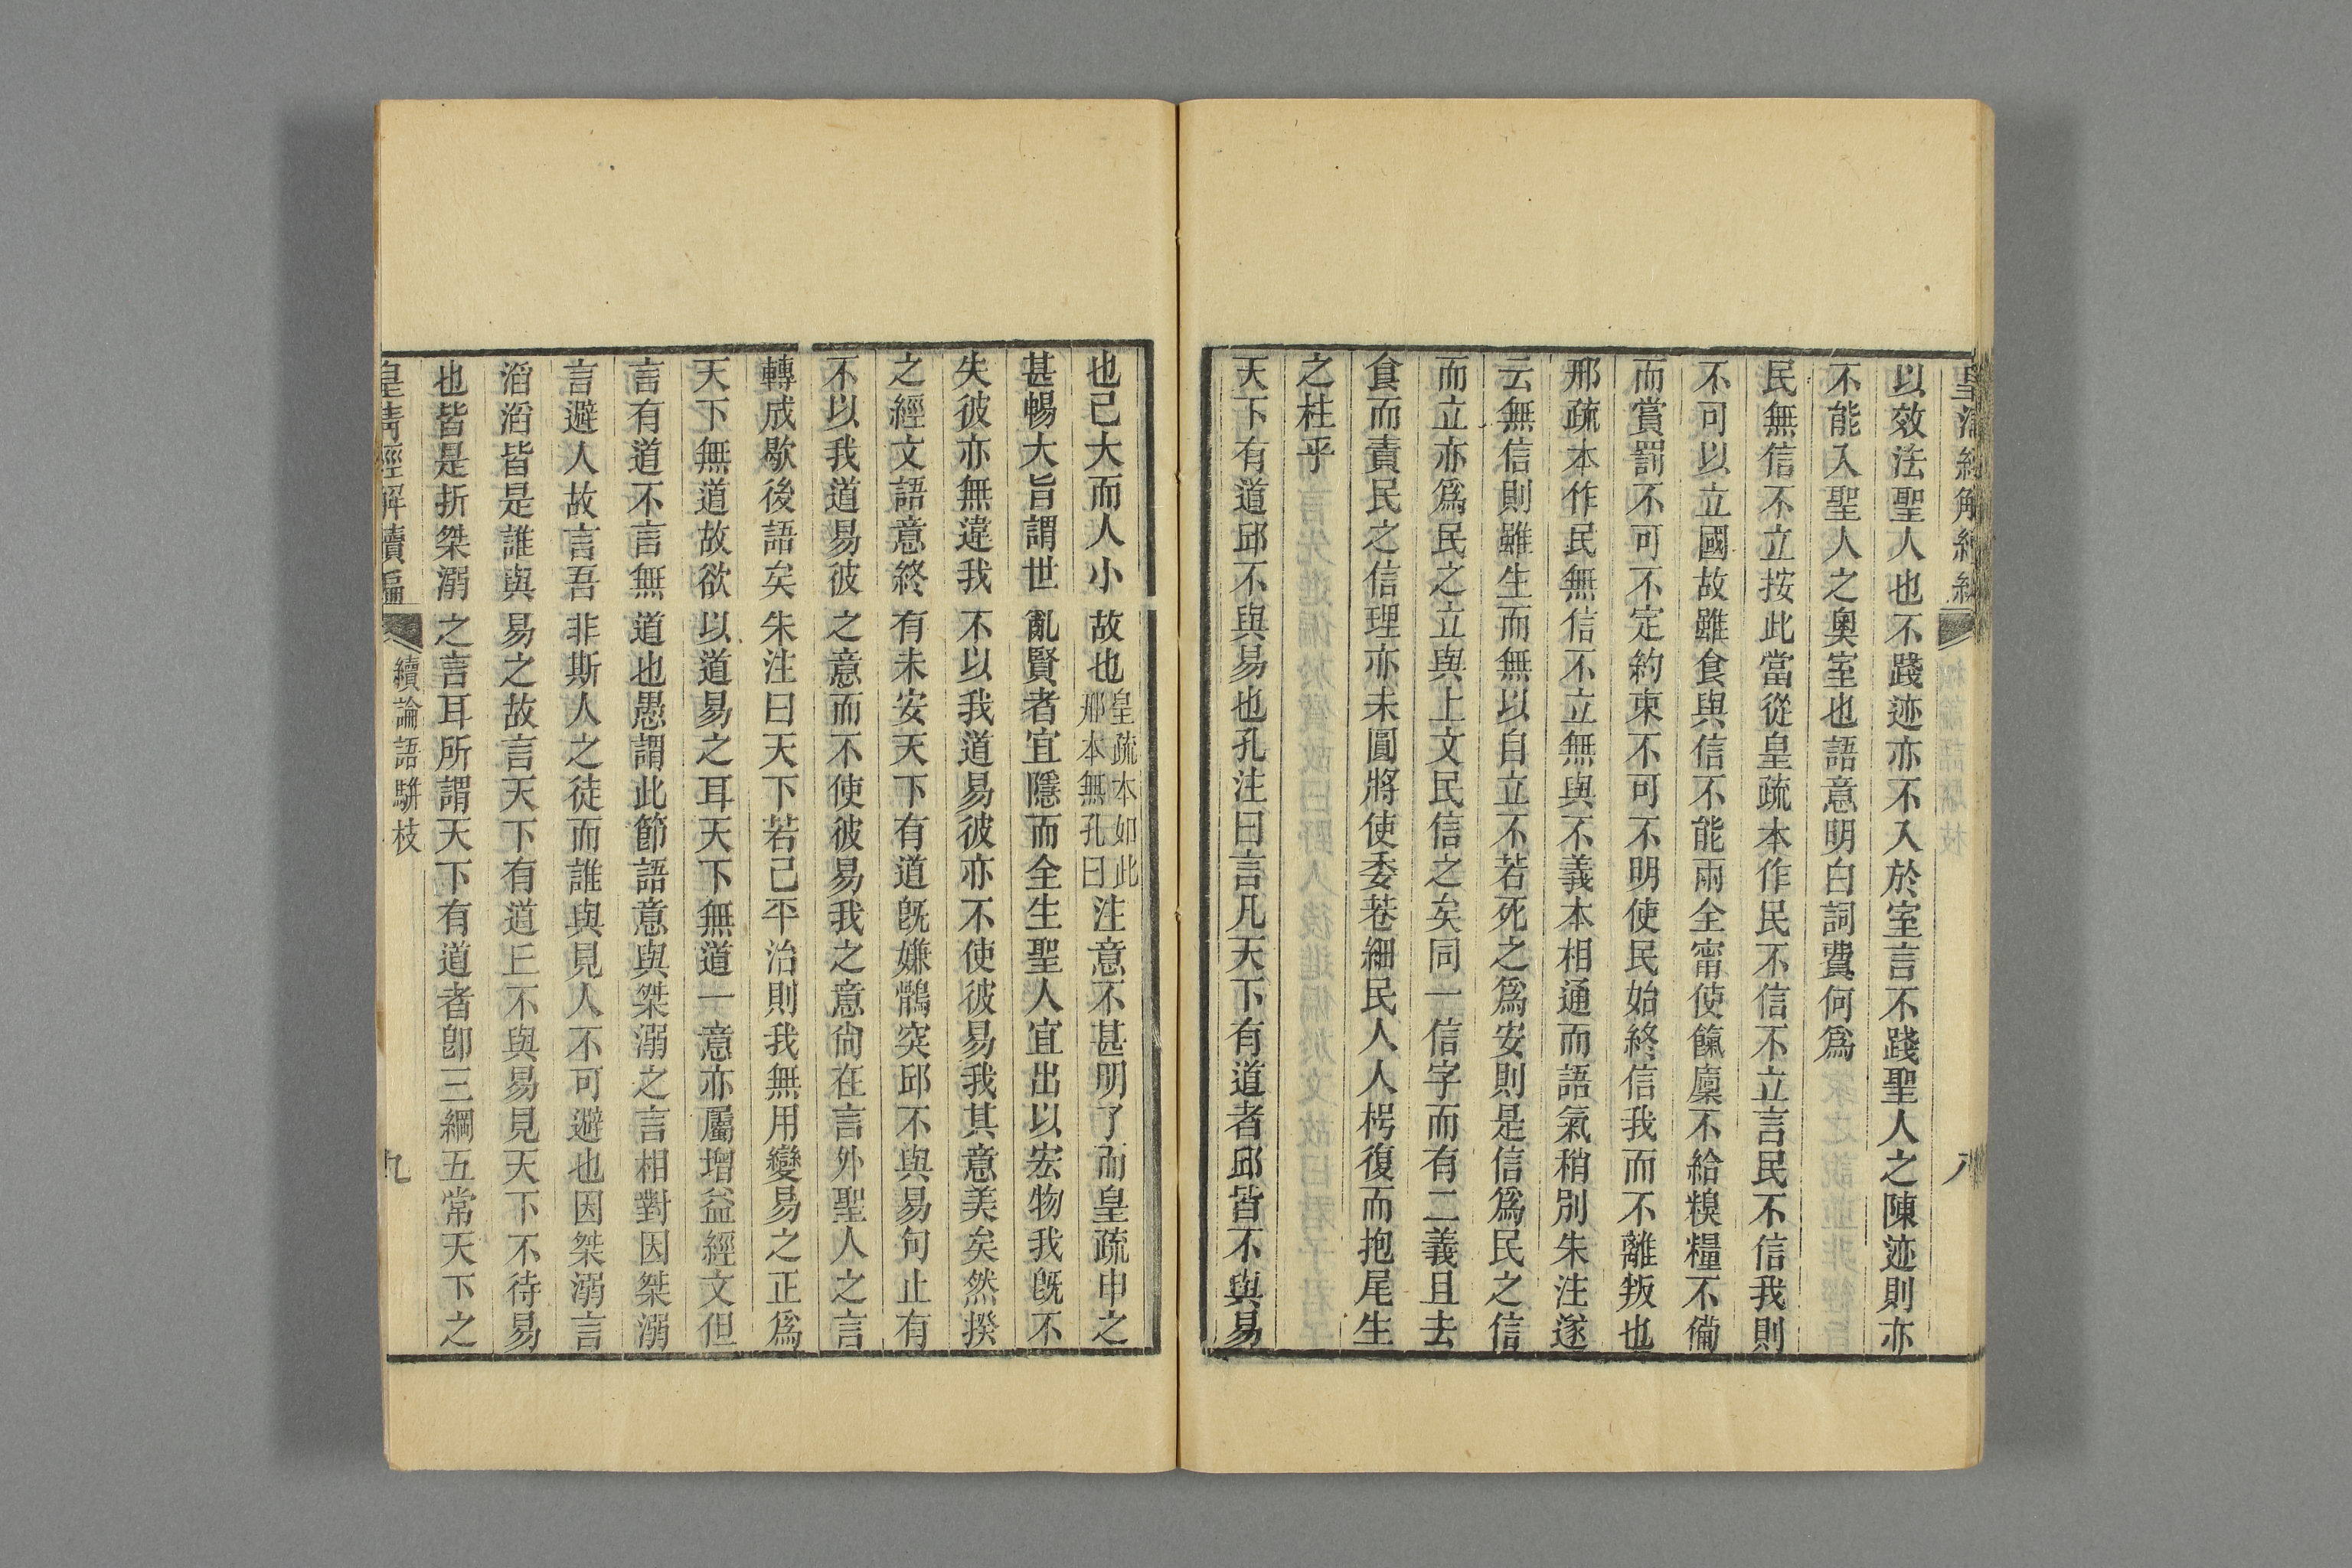 皇清經解續編
八
以效法聖人也不踐迹亦不入於室言不踐聖人之陳迹則亦
不能入聖人之奧室也語意明白詞費何爲
民無信不立按此當從皇疏本作民不信不立言民不信我則
不可以立國故雖食與信不能兩全甯使餼廩不給糗糧不備
而賞罰不可不定約束不可不明使民始終信我而不離叛也
邢疏本作民無信不立無與不義本相通而語氣稍別朱注遂
云無信則雖生而無以自立不若死之爲安則是信爲民之信
而立亦爲民之立與上文民信之矣同一信字而有二義且去
食而責民之信理亦未圓將使委巷細民人人楞復而抱尾生
之柱乎
天下有道邱不與易也孔注曰言凡天下有道者邱皆不與易
也已大而人小故也皇疏本如此邢本無孔曰注意不甚明了而皇疏申之
甚暢大旨謂世亂賢者宜隱而全生聖人宜出以宏物我旣不
失彼亦無違我不以我道易彼亦不使彼易我其意美矣然揆
之經文語意終有未安天下有道旣嫌鶻突邱不與易句止有
不以我道易彼之意而不使彼易我之意尙在言外聖人之言
轉成歇後語矣朱注曰天下若已平治則我無用變易之正爲
天下無道故欲以道易之耳天下無道一意亦屬增益經文但
言有道不言無道也愚謂此節語意與桀溺之言相對因桀溺
言避人故言吾非斯人之徒而誰與見人不可避也因桀溺言
滔滔皆是誰與易之故言天下有道丘不與易見天下不待易
也皆是折桀溺之言耳所謂天下有道者卽三綱五常天下之
皇清經解續編
續論語駢枝
九